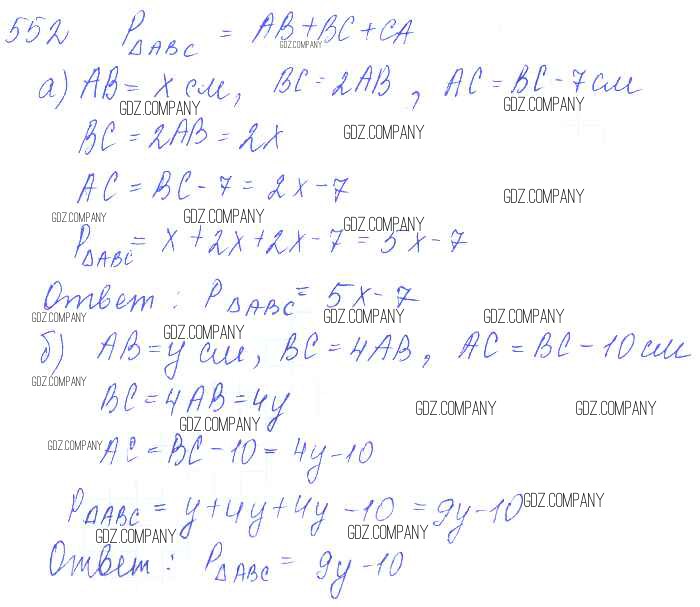 552 P△ABC = AB+BC+CA
GDZ.COMPANY
а) AB = x см, BC = 2AB, AC = BC - 7 см
GDZ.COMPANY GDZ.COMPANY
BC = 2AB = 2x GDZ.COMPANY
AC = BC - 7 = 2x - 7 GDZ.COMPANY
GDZ.COMPANY GDZ.COMPANY GDZ.COMPANY
P△ABC = x + 2x + 2x - 7 = 5x - 7
Ответ: P△ABC = 5x - 7
GDZ.COMPANY GDZ.COMPANY GDZ.COMPANY
GDZ.COMPANY
б) AB = y см, BC = 4AB, AC = BC - 10 см
GDZ.COMPANY
BC = 4AB = 4y GDZ.COMPANY GDZ.COMPANY
GDZ.COMPANY
GDZ.COMPANY AC = BC - 10 = 4y - 10
P△ABC = y + 4y + 4y - 10 = 9y - 10 GDZ.COMPANY
GDZ.COMPANY GDZ.COMPANY
Ответ: P△ABC = 9y - 10